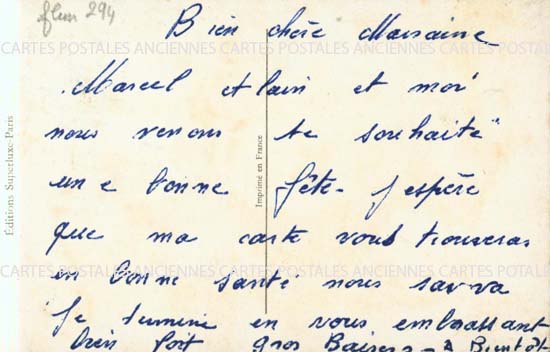 flem 294
Bien chère Marraine
CARTES POSTALES ANCIENNES CARTES POSTALES ANCIENNES CARTES POTALES
Marcel et lain et moi
nous venons te souhaité
une bonne fête- j'espère
que ma carte vous trouveras
en bonne santé nous sa vva
CARTES POSTALES ANCIENNES CARTES POSTALES ANCIENNES CARTES POTALES
Je termine en vous embrassant
bien foit gros Baisers - à Bientôt
Éditions Superluxe-Paris
Imprimé en France